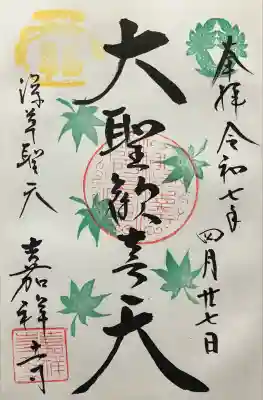 奉拝 令和七年四月廿七日
大聖歓喜天
深草聖天
嘉祥寺